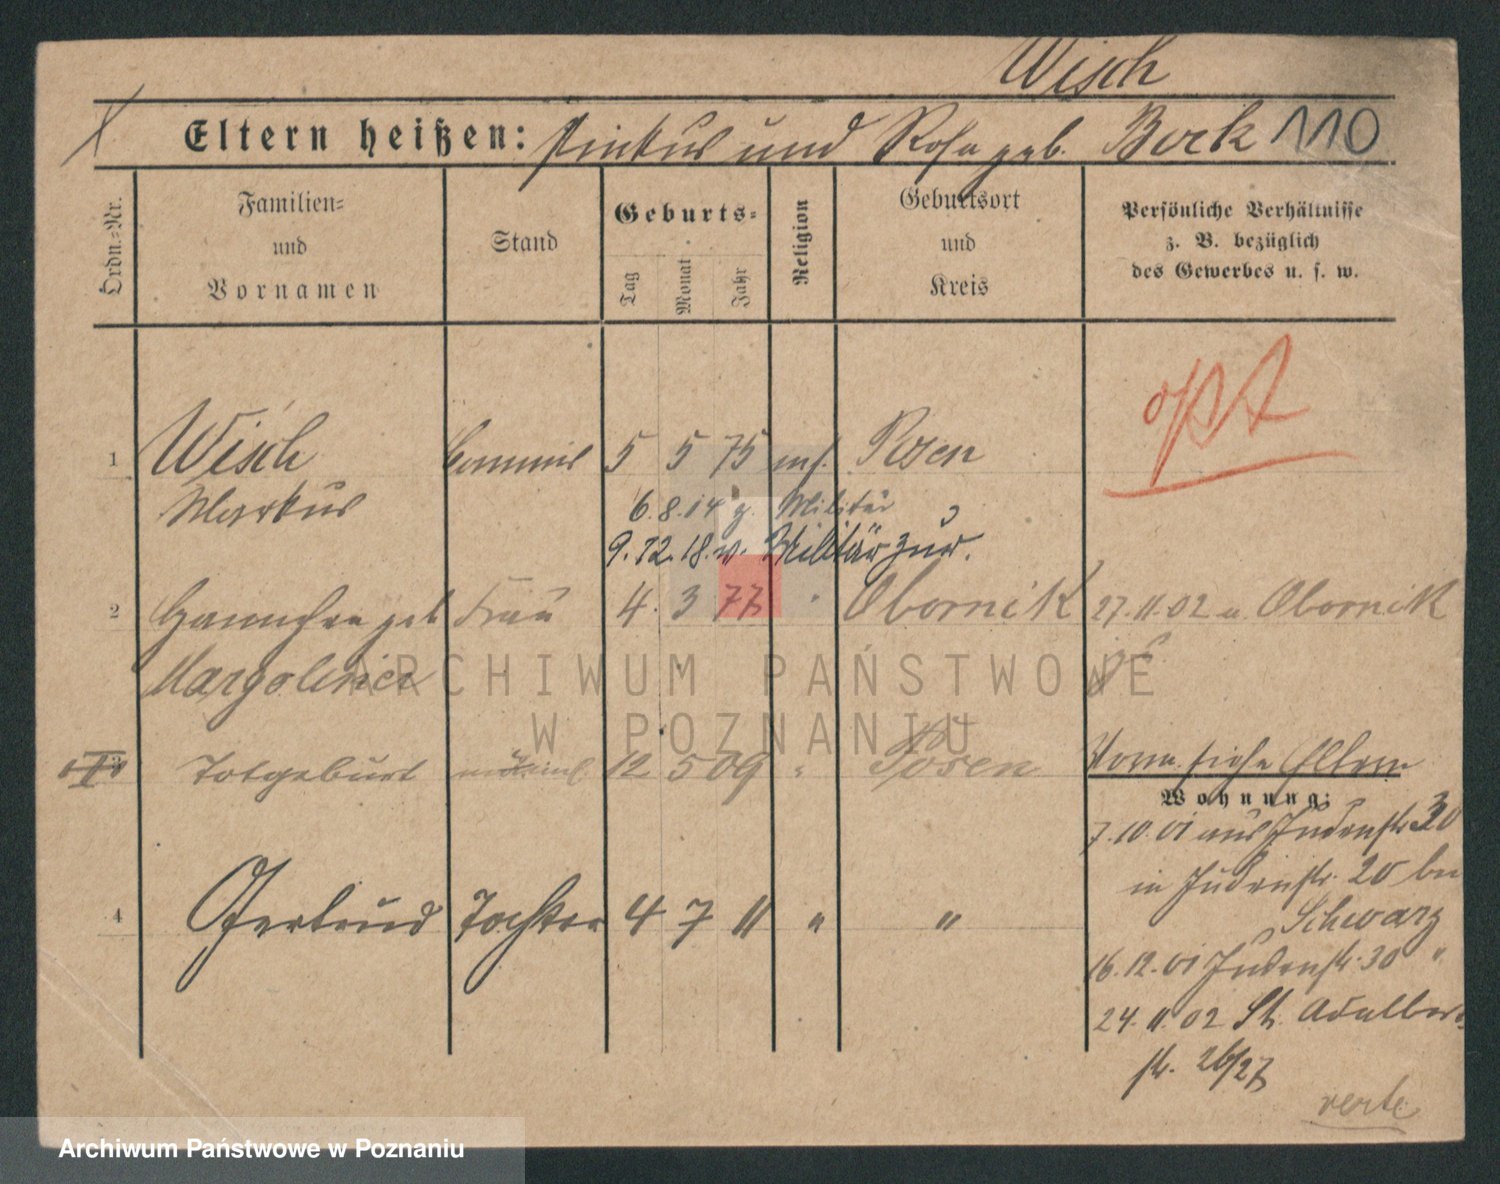 Wisch
Eltern heißen: Pinkus und Rosa geb. Bock 110
Ordn.-Nr.
Familien-
und
Vornamen
Stand
Geburts-
Tag
Monat
Jahr
Religion
Geburtsort
und
Kreis
Persönliche Verhältnisse
z. B. bezüglich
des Gewerbes u. s. w.
opt
1 Wisch Commis 5 5 75 mos. Posen
Markus 6.8.14 z. Militär
9.12.18. v. Militär zur.
2 Hannchen geb Frau 4. 3 77 " Obornik 27.11.02 n. Obornik
Margoliner
3 Totgeburt männl. 12 5 09 " Posen
Vorm. siehe Eltern
Wohnung:
7.10.01 aus Judenstr. 30
in Judenstr. 20 bei
Schwarz
4 Gertrud Tochter 4 7 11 " "
16.12.01 Judenstr. 30 "
24.11.02 St. Adalbert
str. 26/27
verte
ARCHIWUM PAŃSTWOWE
W POZNANIU
Archiwum Państwowe w Poznaniu